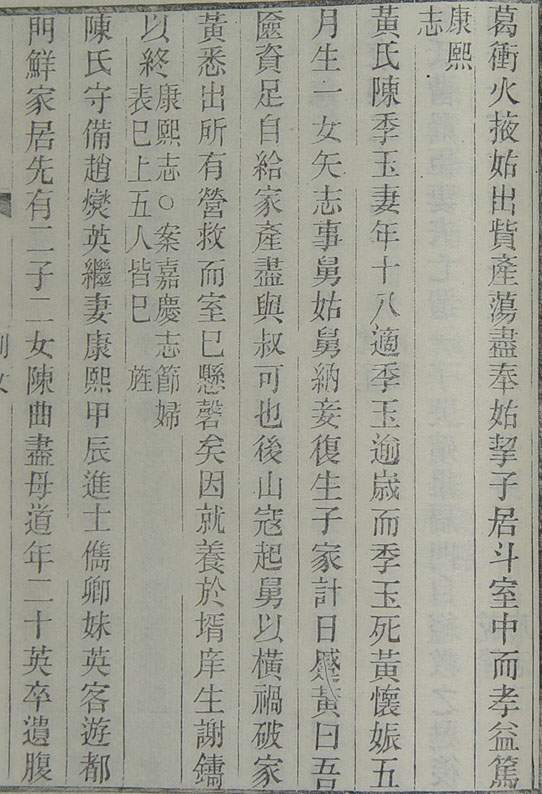 葛衝火掖姑出貲產蕩盡奉姑挈子居斗室中而孝益篤
康熙
志
黃氏陳季玉妻年十八適季玉逾歲而季玉死黃懷娠五
月生一女矢志事舅姑舅納妾復生子家計日蹙黃曰吾
匳資足自給家產盡與叔可也後山寇起舅以橫禍破家
黃悉出所有營救而室已懸磬矣因就養於壻庠生謝鏞
以終
康熙志○案嘉慶志節婦
表已上五人皆已 旌
陳氏守備趙爕英繼妻康熙甲辰進士儁卿妹英客遊都
門鮮家居先有二子二女陳曲盡母道年二十英卒遺腹